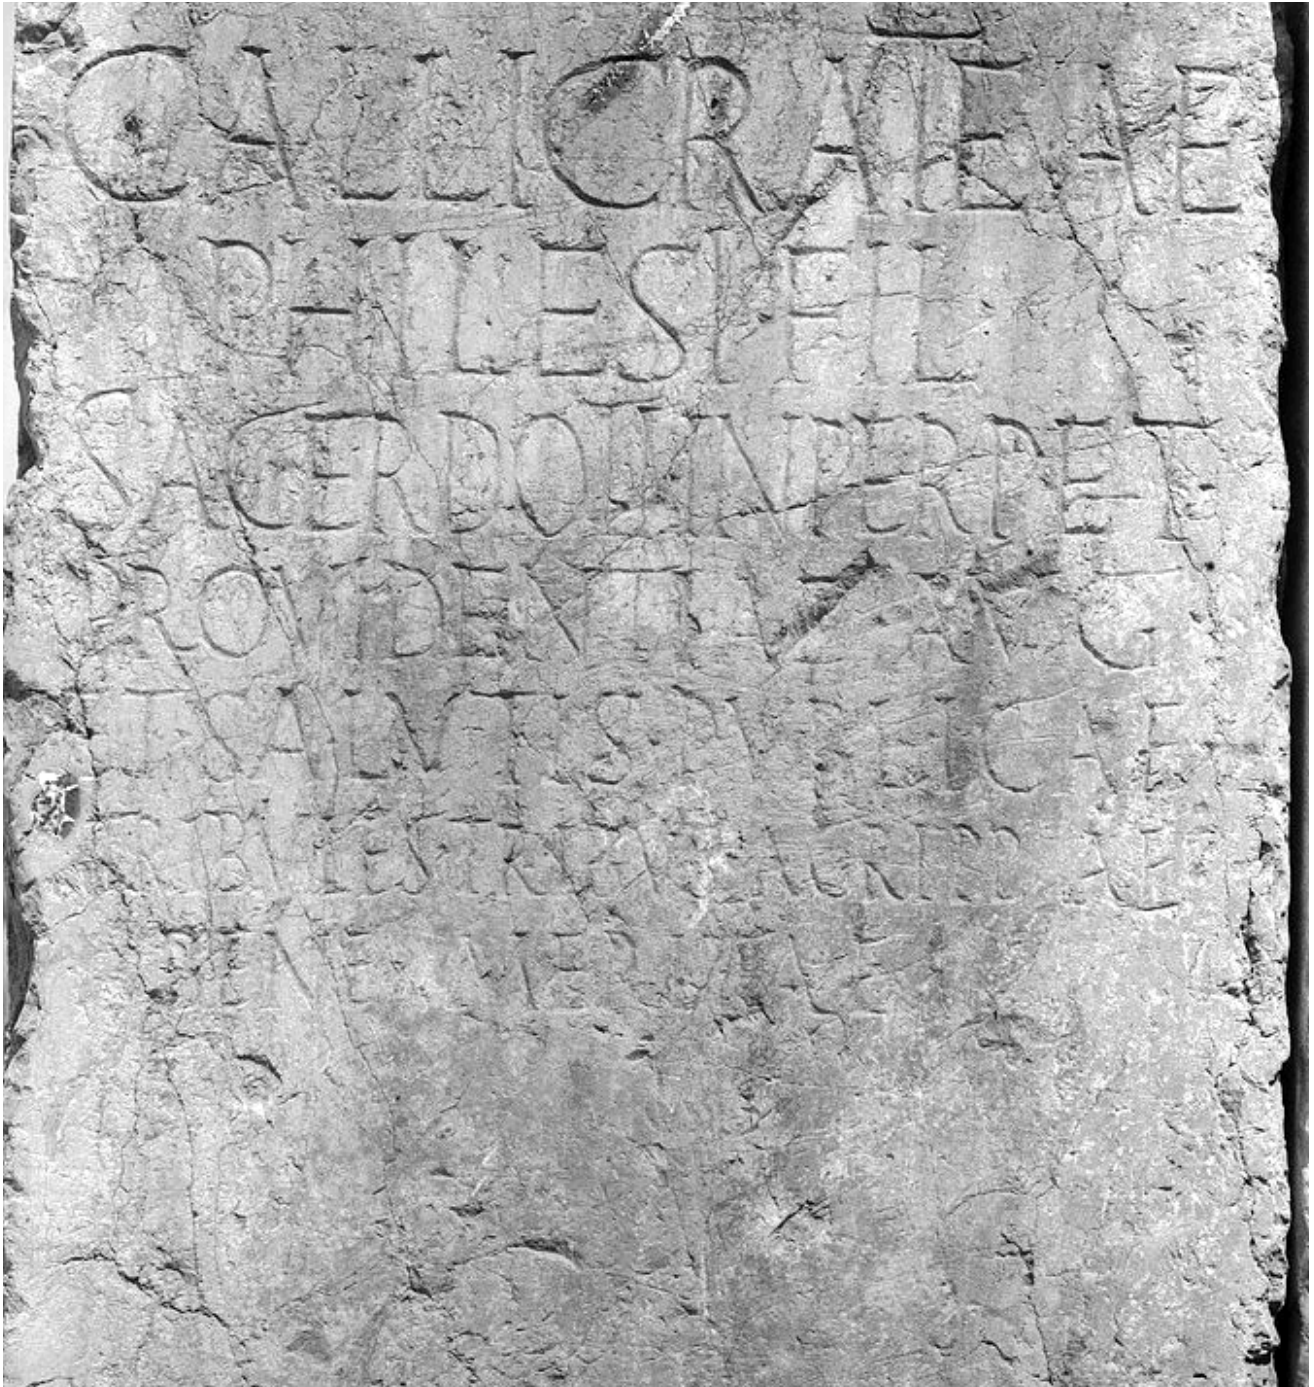 CALLICRATEAE
PHILESI FIL
SACERDOTI IN PERPET
PROVIDENTIAE AVG
ET SALVTIS PVBLICAE
TRIBVLES TRIBVS AGRIPPIAE
BENE MERITAE